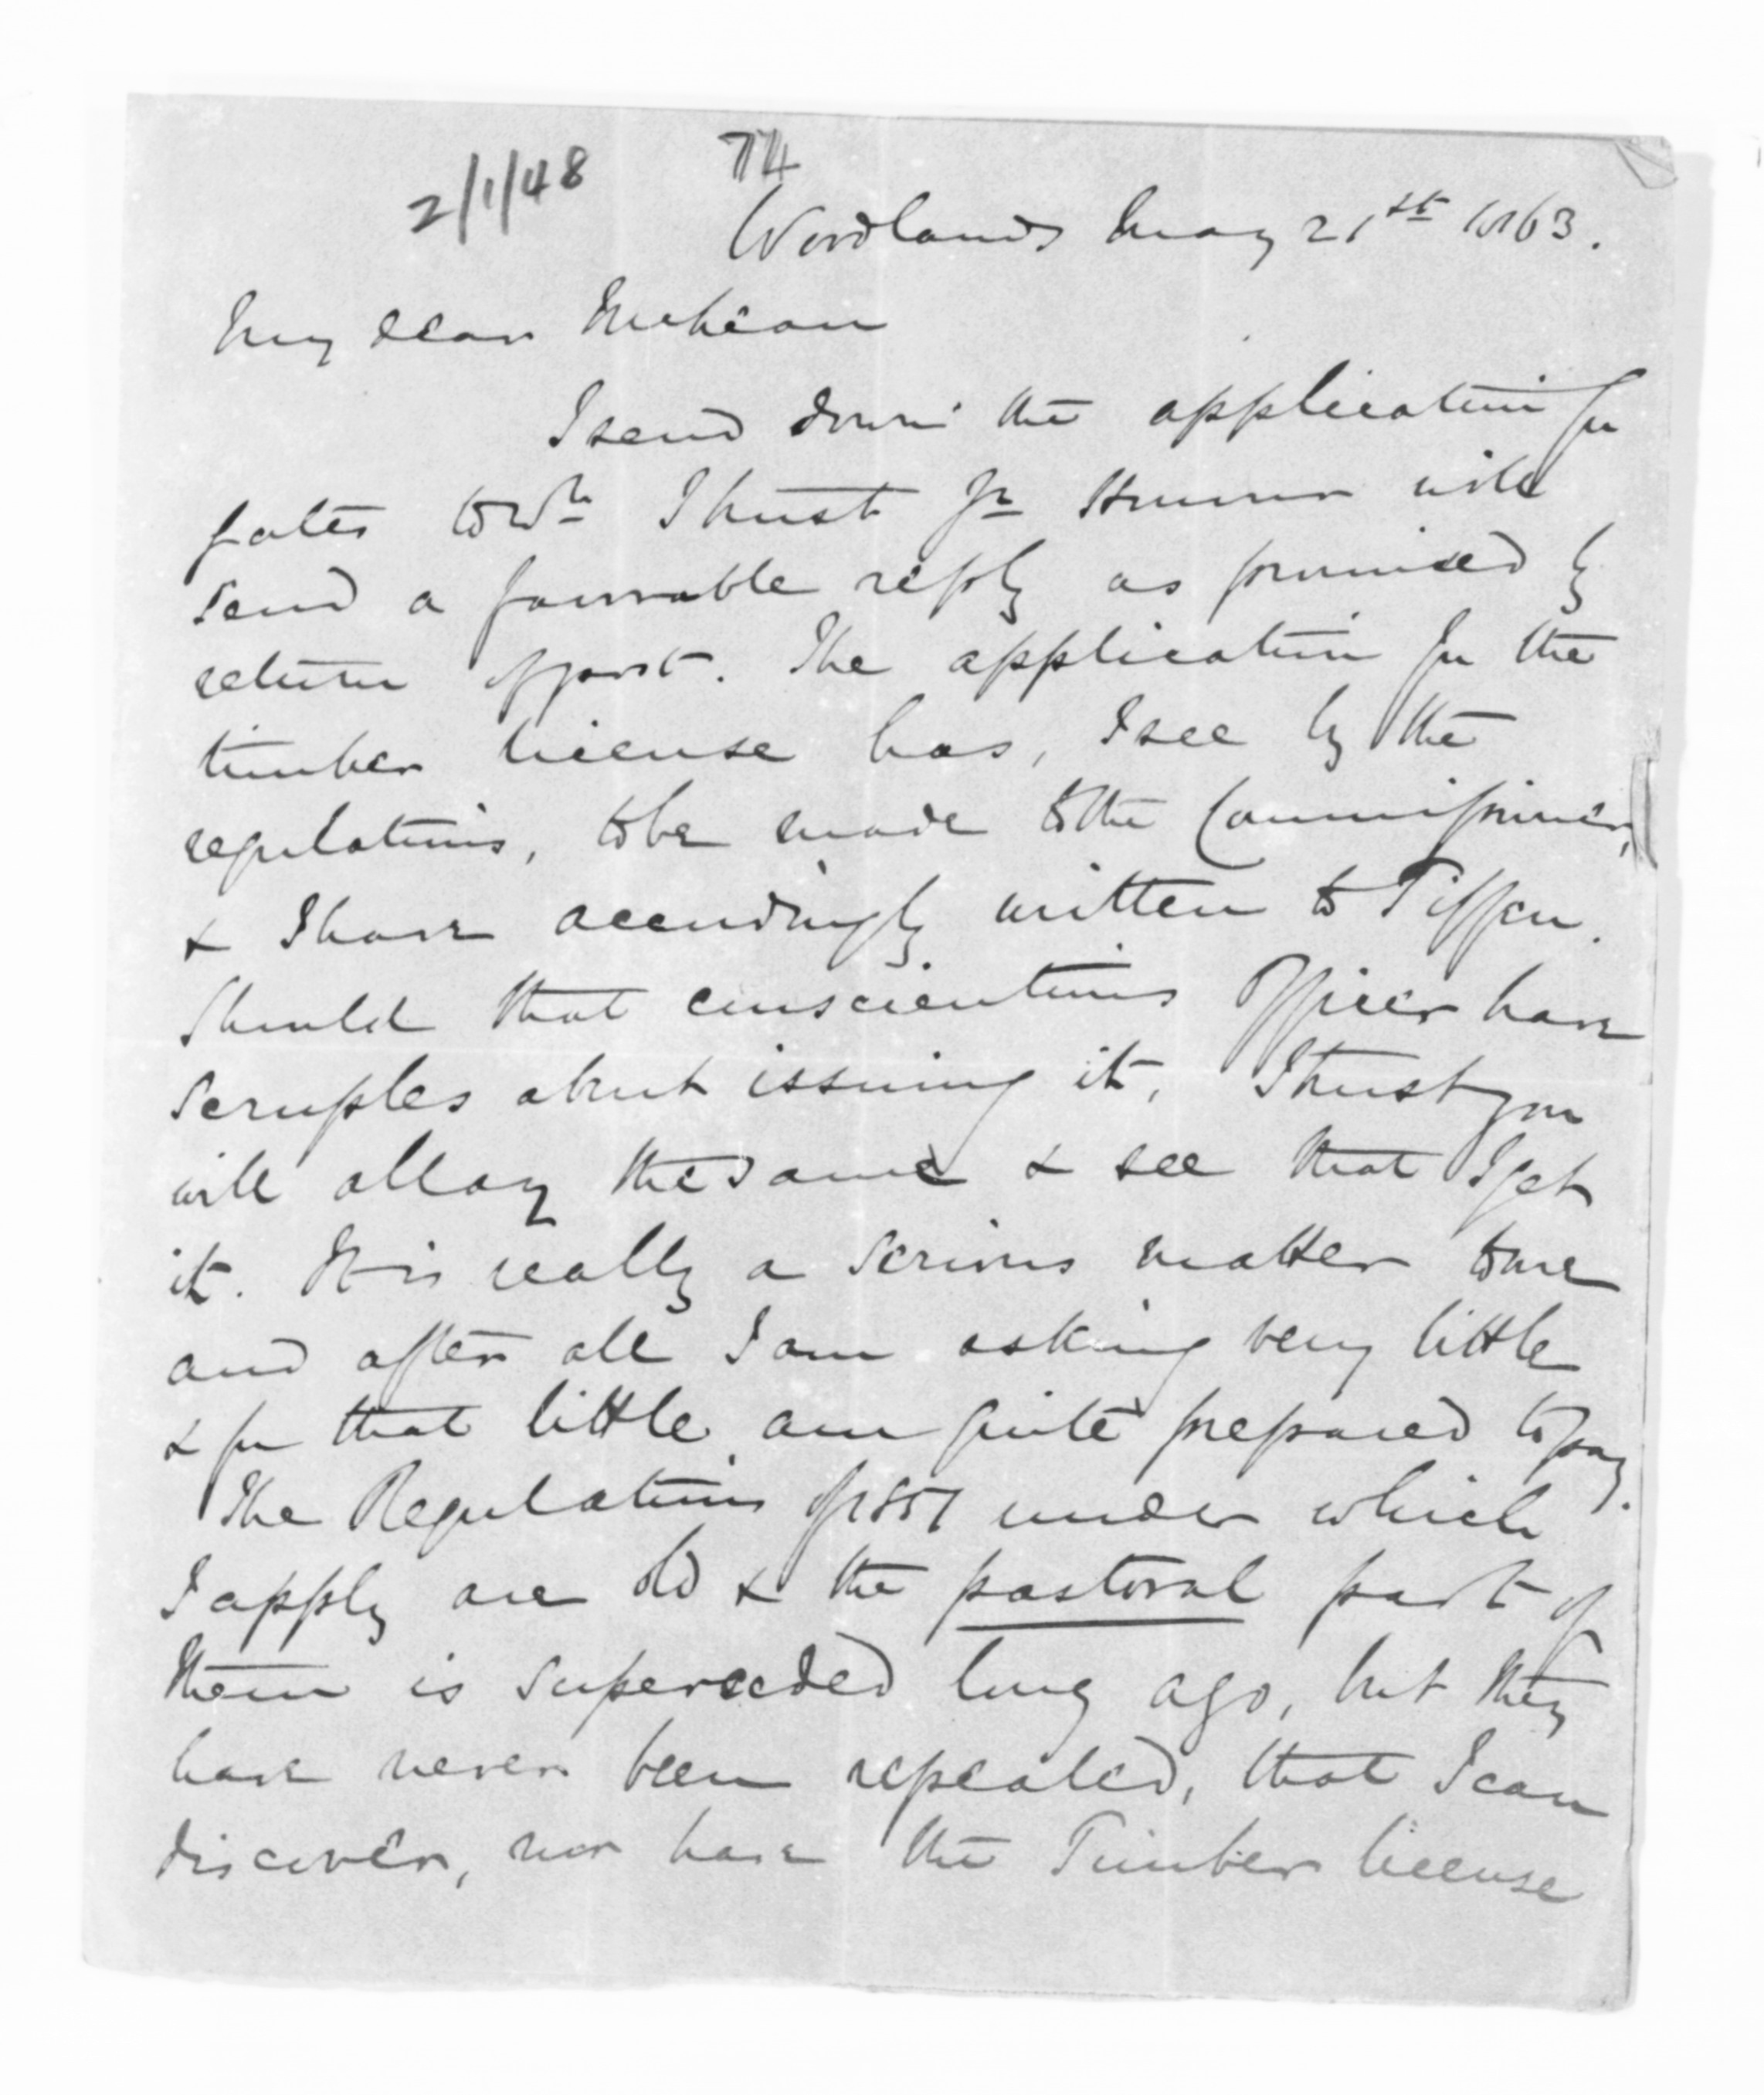 2/1/48 74
Woodlands May 21st 1863.
My dear McLean
I send down the application for
gates to wh I trust yr Honour will
send a favourable reply as promised by
return of post. The application for the
timber license has, I see by the
regulations, to be made to the Commissioner,
& I have accordingly written to Tiffen.
Should that conscientious Officer have
scruples about issuing it, I trust you
will allay the same & see that I get
it. It is really a serious matter to me
and after all I am asking very little
& for that little am quite prepared to pay.
The Regulations of 1857 under which
I apply are old & the pastoral part of
them is superceded long ago, but they
have never been repealed, that I can
discover, nor have the Timber license